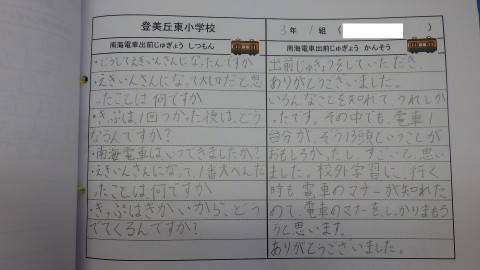 登美丘東小学校
南海電車出前じゅぎょう しつもん
・どうしてえきいんさんになったんですか
・えきいんさんになって大切だと思
ったことは何ですか
・きっぷは、1回つかった後は、どう
なるんですか?
・南海電車はいつできましたか?
・えきいんさんになって、1番大へんだ
ったことは何ですか
・きっぷはきかいから、どう
でてくるんですか?
3年 1組 ( )
南海電車出前じゅぎょう かんそう
出前じゅぎょうをしていただき、
ありがとうございました。
いろんなことを知れて、うれしか
ったです。その中でも、電車1
台分が、ぞう13頭ということが
おもしろかったし、すごいと、思い
ました。校外学習に、行く
時も電車のマナーが知れた
ので、電車のマナーを、しっかりまもろ
うと思います。
ありがとうございました。